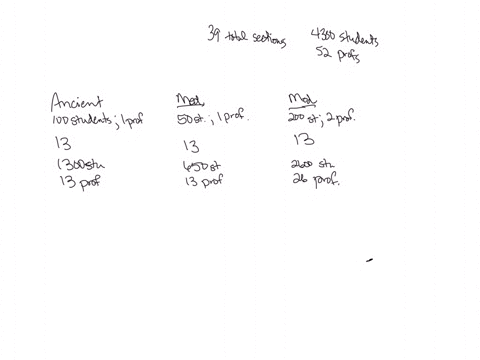 39 total sections 4300 students
52 profs
Ancient Med. Mod.
100 students; 1 prof 50 st.; 1 prof. 200 st; 2 prof.
13 13 13
1300 stu 650 st 2600 stu
13 prof 13 prof 26 prof.